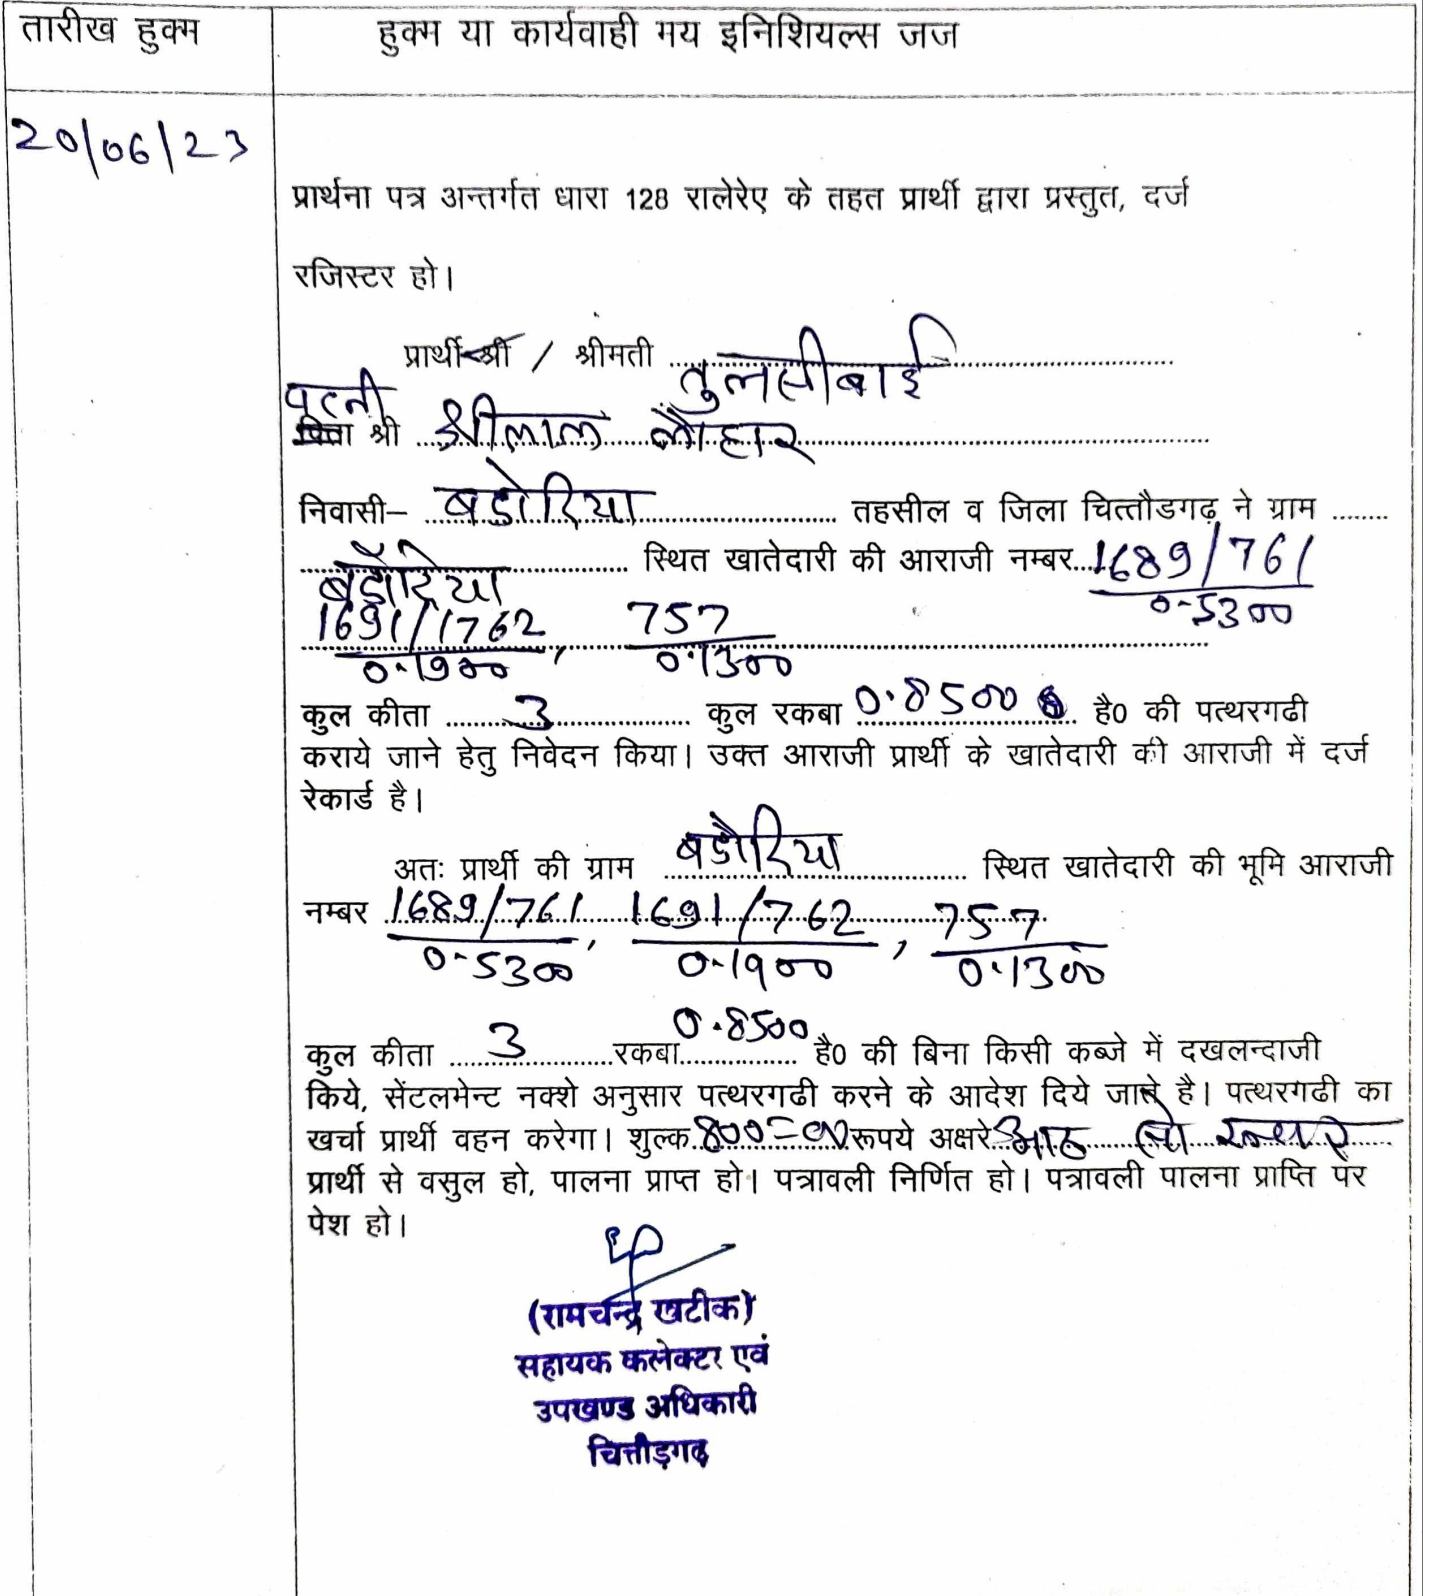 तारीख हुक्म हुक्म या कार्यवाही मय इनिशियल्स जज
20/06/23
प्रार्थना पत्र अन्तर्गत धारा 128 रालेरेए के तहत प्रार्थी द्वारा प्रस्तुत, दर्ज
रजिस्टर हो।
प्रार्थी श्री / श्रीमती तुलसीबाई
पत्नी
पिता श्री श्रीलाल लौहार
निवासी– बडोरिया तहसील व जिला चित्तौडगढ़ ने ग्राम ........
बडौरिया स्थित खातेदारी की आराजी नम्बर 1689/761
0-5300
1691/1762, 757
0.1900 0.1300
कुल कीता 3 कुल रकबा 0.8500 है0 की पत्थरगढी
कराये जाने हेतु निवेदन किया। उक्त आराजी प्रार्थी के खातेदारी की आराजी में दर्ज
रेकार्ड है।
अतः प्रार्थी की ग्राम बडौरिया स्थित खातेदारी की भूमि आराजी
नम्बर 1689/761, 1691/762, 757
0-5300 0-1900 0.1300
कुल कीता 3 रकबा 0.8500 है0 की बिना किसी कब्जे में दखलन्दाजी
किये, सेंटलमेन्ट नक्शे अनुसार पत्थरगढी करने के आदेश दिये जाते है। पत्थरगढी का
खर्चा प्रार्थी वहन करेगा। शुल्क 800=00 रूपये अक्षरे आठ सो
प्रार्थी से वसुल हो, पालना प्राप्त हो। पत्रावली निर्णित हो। पत्रावली पालना प्राप्ति पर
पेश हो।
(रामचन्द्र खटीक)
सहायक कलेक्टर एवं
उपखण्ड अधिकारी
चित्तौड़गढ़